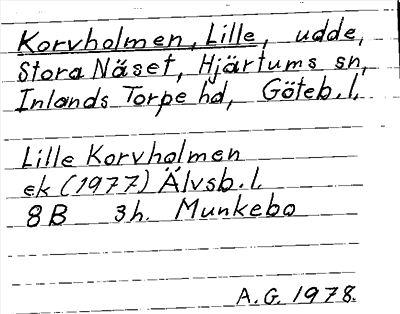 Korvholmen, Lille, udde,
Stora Näset, Hjärtums sn,
Inlands Torpe hd, Göteb.l.
Lille Korvholmen
ek (1977) Älvsb.l.
8B 3h. Munkebo
A.G. 1978.